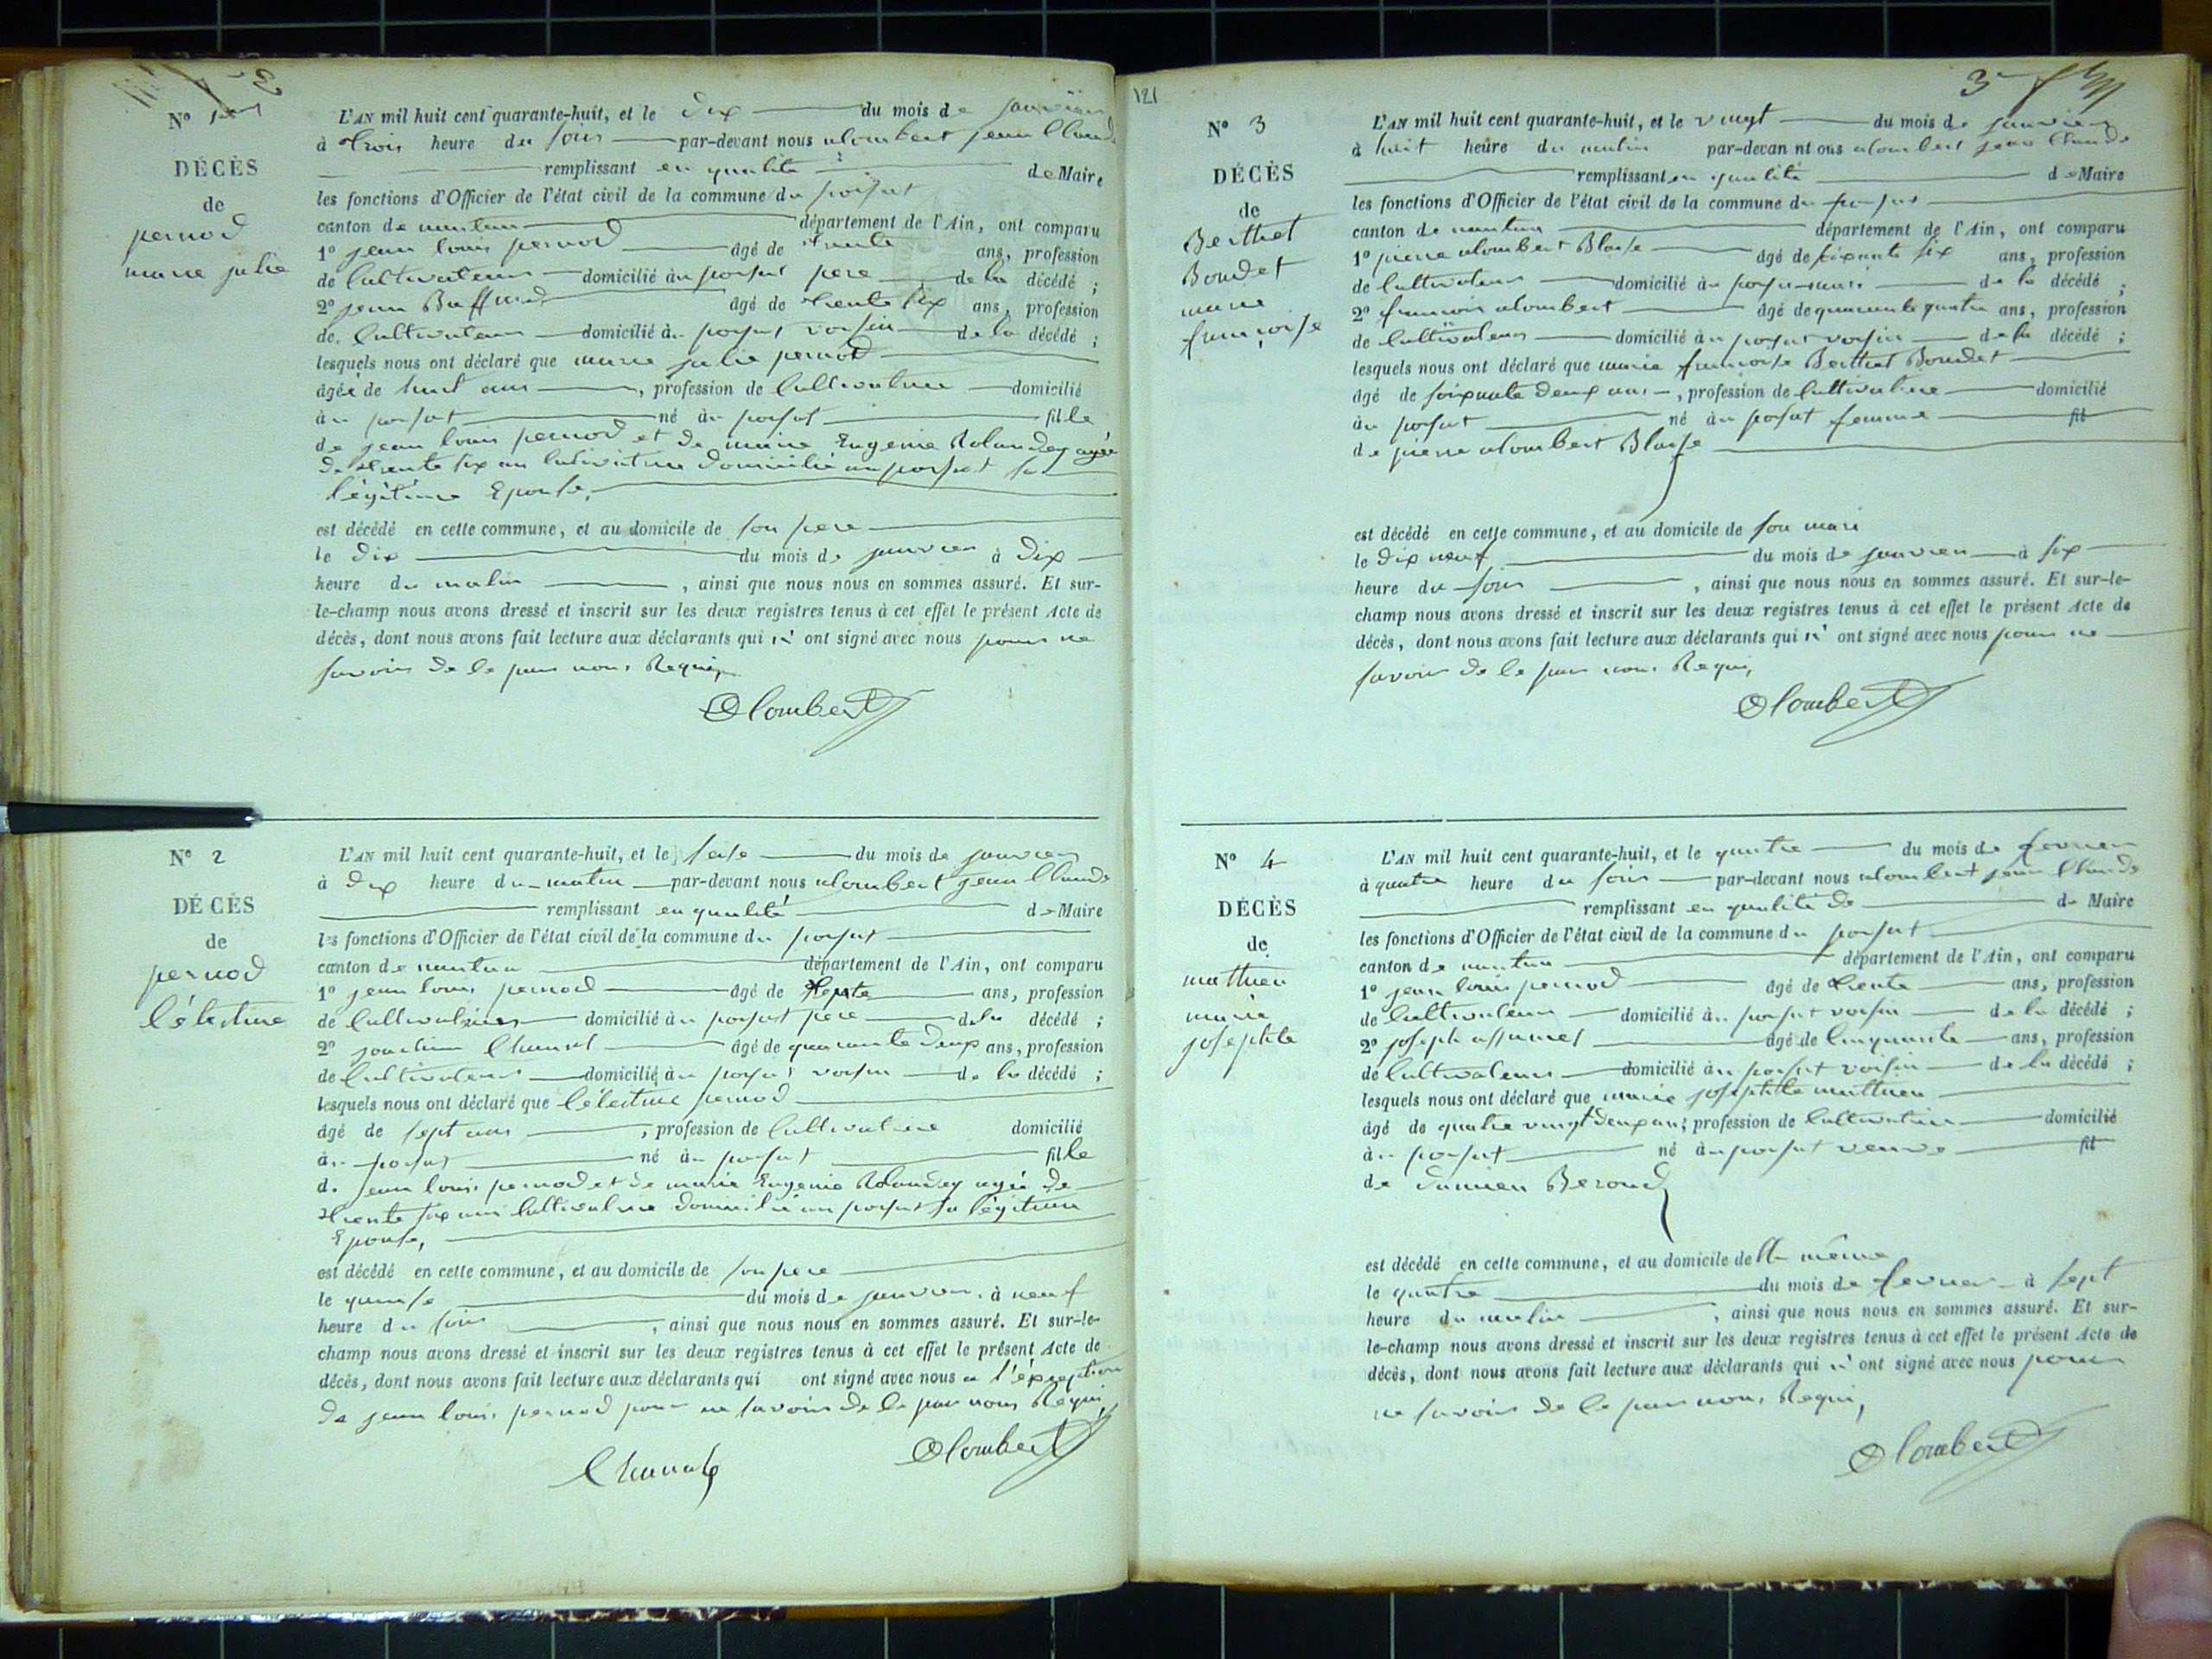 N° 1er
DÉCÈS
de
pernod
marie julie
L'AN mil huit cent quarante-huit, et le dix du mois de janvier
à trois heure du soir par-devant nous alombert jean Claude
remplissant en qualité de Maire
les fonctions d'Officier de l'état civil de la commune du poisat
canton de nantua département de l'Ain, ont comparu
1° jean louis pernod âgé de trente ans, profession
de Cultivateur domicilié au poisat pere de la décédé ;
2° jean Buffard âgé de trente six ans, profession
de Cultivateur domicilié au poisat voisin de la décédé ;
lesquels nous ont déclaré que marie julie pernod
âgée de huit ans, profession de Cultivatrice domicilié
au poisat né au poisat fille
de jean louis pernod et de marie Eugenie Rolandez agée
de trente six ans Cultivatrice domicilié au poisat sa
légitime Epouse,
est décédé en cette commune, et au domicile de son pere
le dix du mois de janvier à dix
heure du matin, ainsi que nous nous en sommes assuré. Et sur-
le-champ nous avons dressé et inscrit sur les deux registres tenus à cet effet le présent Acte de
décès, dont nous avons fait lecture aux déclarants qui n' ont signé avec nous pour ne
savoir de ce par nous Requis,
Alombert
N° 2
DÉCÈS
de
pernod
Célestine
L'AN mil huit cent quarante-huit, et le seise du mois de janvier
à dix heure du matin par-devant nous alombert jean Claude
remplissant en qualité de Maire
les fonctions d'Officier de l'état civil de la commune du poisat
canton de nantua département de l'Ain, ont comparu
1° jean louis pernod âgé de trente ans, profession
de Cultivateur domicilié au poisat père de la décédé ;
2° joachim Chanal âgé de quarante deux ans, profession
de Cultivateur domicilié au poisat voisin de la décédé ;
lesquels nous ont déclaré que Célestine pernod
âgé de sept ans, profession de Cultivatrice domicilié
au poisat né au poisat fille
de jean louis pernod et de marie Eugenie Rolandez agée de
trente six ans Cultivatrice domicilié au poisat sa légitime
Epouse,
est décédé en cette commune, et au domicile de son pere
le quinse du mois de janvier à neuf
heure du soir, ainsi que nous nous en sommes assuré. Et sur-le-
champ nous avons dressé et inscrit sur les deux registres tenus à cet effet le présent Acte de
décès, dont nous avons fait lecture aux déclarants qui ont signé avec nous a l'éxception
de jean louis pernod pour ne savoir de ce par nous Requis,
Chanal Alombert
121
3
N° 3
DÉCÈS
de
Berthet
Boudet
marie
françoise
L'AN mil huit cent quarante-huit, et le vingt du mois de janvier
à huit heure du matin par-devan nt ous alombert jean Claude
remplissant en qualité de Maire
les fonctions d'Officier de l'état civil de la commune du poisat
canton de nantua département de l'Ain, ont comparu
1° pierre alombert Blaise âgé de soixante six ans, profession
de Cultivateur domicilié au poisat mari de la décédé ;
2° francois alombert âgé de quarante quatre ans, profession
de Cultivateur domicilié au poisat voisin de la décédé ;
lesquels nous ont déclaré que marie françoise Berthet Boudet
âgé de soixante deux ans, profession de Cultivatrice domicilié
au poisat né au poisat femme fil
de pierre alombert Blaise
est décédé en cette commune, et au domicile de son mari
le dix neuf du mois de janvier à six
heure du soir, ainsi que nous nous en sommes assuré. Et sur-le-
champ nous avons dressé et inscrit sur les deux registres tenus à cet effet le présent Acte de
décès, dont nous avons fait lecture aux déclarants qui n' ont signé avec nous pour ne
savoir de ce par nous Requis,
Alombert
N° 4
DÉCÈS
de
mathieu
marie
josephte
L'AN mil huit cent quarante-huit, et le quatre du mois de fevrier
à quatre heure du soir par-devant nous alombert jean Claude
remplissant en qualité de de Maire
les fonctions d'Officier de l'état civil de la commune du poisat
canton de nantua département de l'Ain, ont comparu
1° jean louis pernod âgé de trente ans, profession
de Cultivateur domicilié au poisat voisin de la décédé ;
2° joseph âgé de Cinquante ans, profession
de Cultivateur domicilié au poisat voisin de la décédé ;
lesquels nous ont déclaré que marie josephte mathieu
âgé de quatre vingt deux ans, profession de Cultivatrice domicilié
au poisat né au poisat veuve fil
de damien Beroud
est décédé en cette commune, et au domicile de Elle même
le quatre du mois de fevrier à sept
heure du matin, ainsi que nous nous en sommes assuré. Et sur-
le-champ nous avons dressé et inscrit sur les deux registres tenus à cet effet le présent Acte de
décès, dont nous avons fait lecture aux déclarants qui n' ont signé avec nous pour
ne savoir de ce par nous Requis,
Alombert